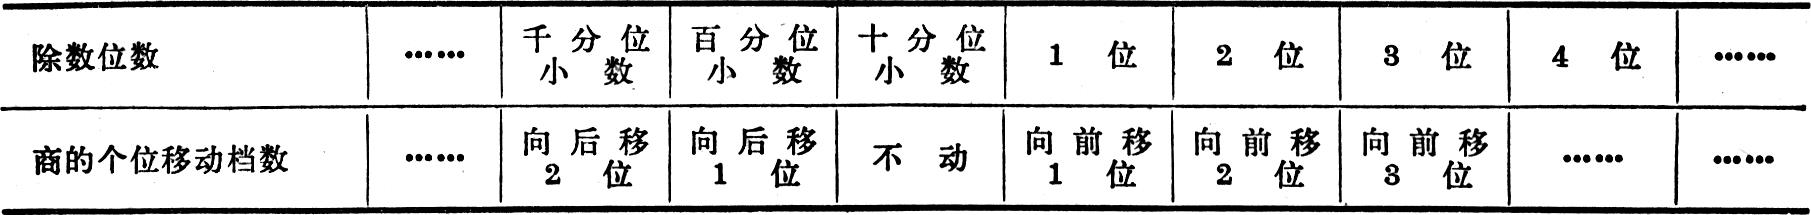 除数位数 …… 千分位小数 百分位小数 十分位小数 1位 2位 3位 4位 ……
商的个位移动档数 …… 向后移2位 向后移1位 不动 向前移1位 向前移2位 向前移3位 …… ……